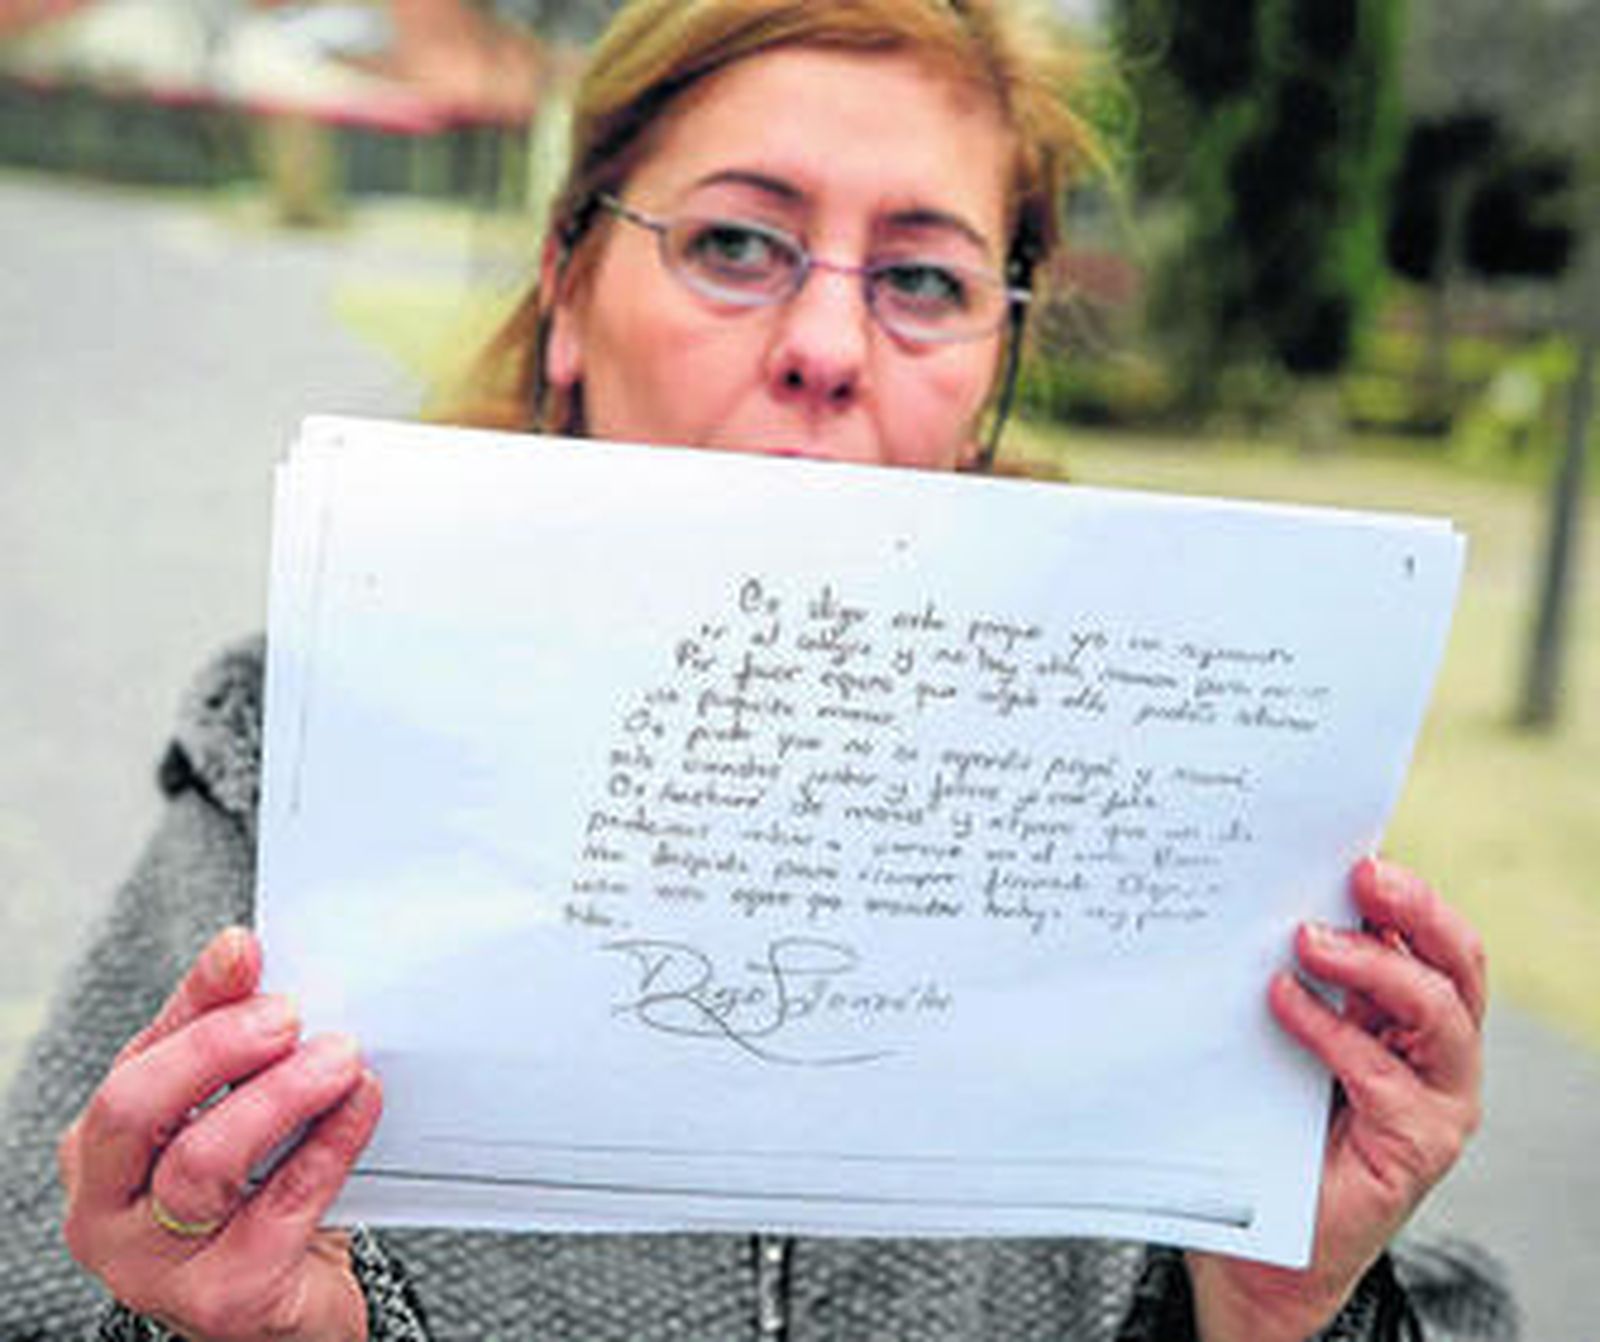 Os digo esto porque yo no aguanto
ir al colegio y no hay otra manera para no ir
Por favor espero que algún día podáis odiarme
un poquito menos.
Os pido que no os separéis papá y mamá
sólo viéndoos juntos y felices yo seré feliz.
Os echaré de menos y espero que un día
podamos volver a vernos en el cielo. Bueno
me despido para siempre firmado Diego
una cosa espero que encuentres trabajo muy pronto
Tata.
Diego González